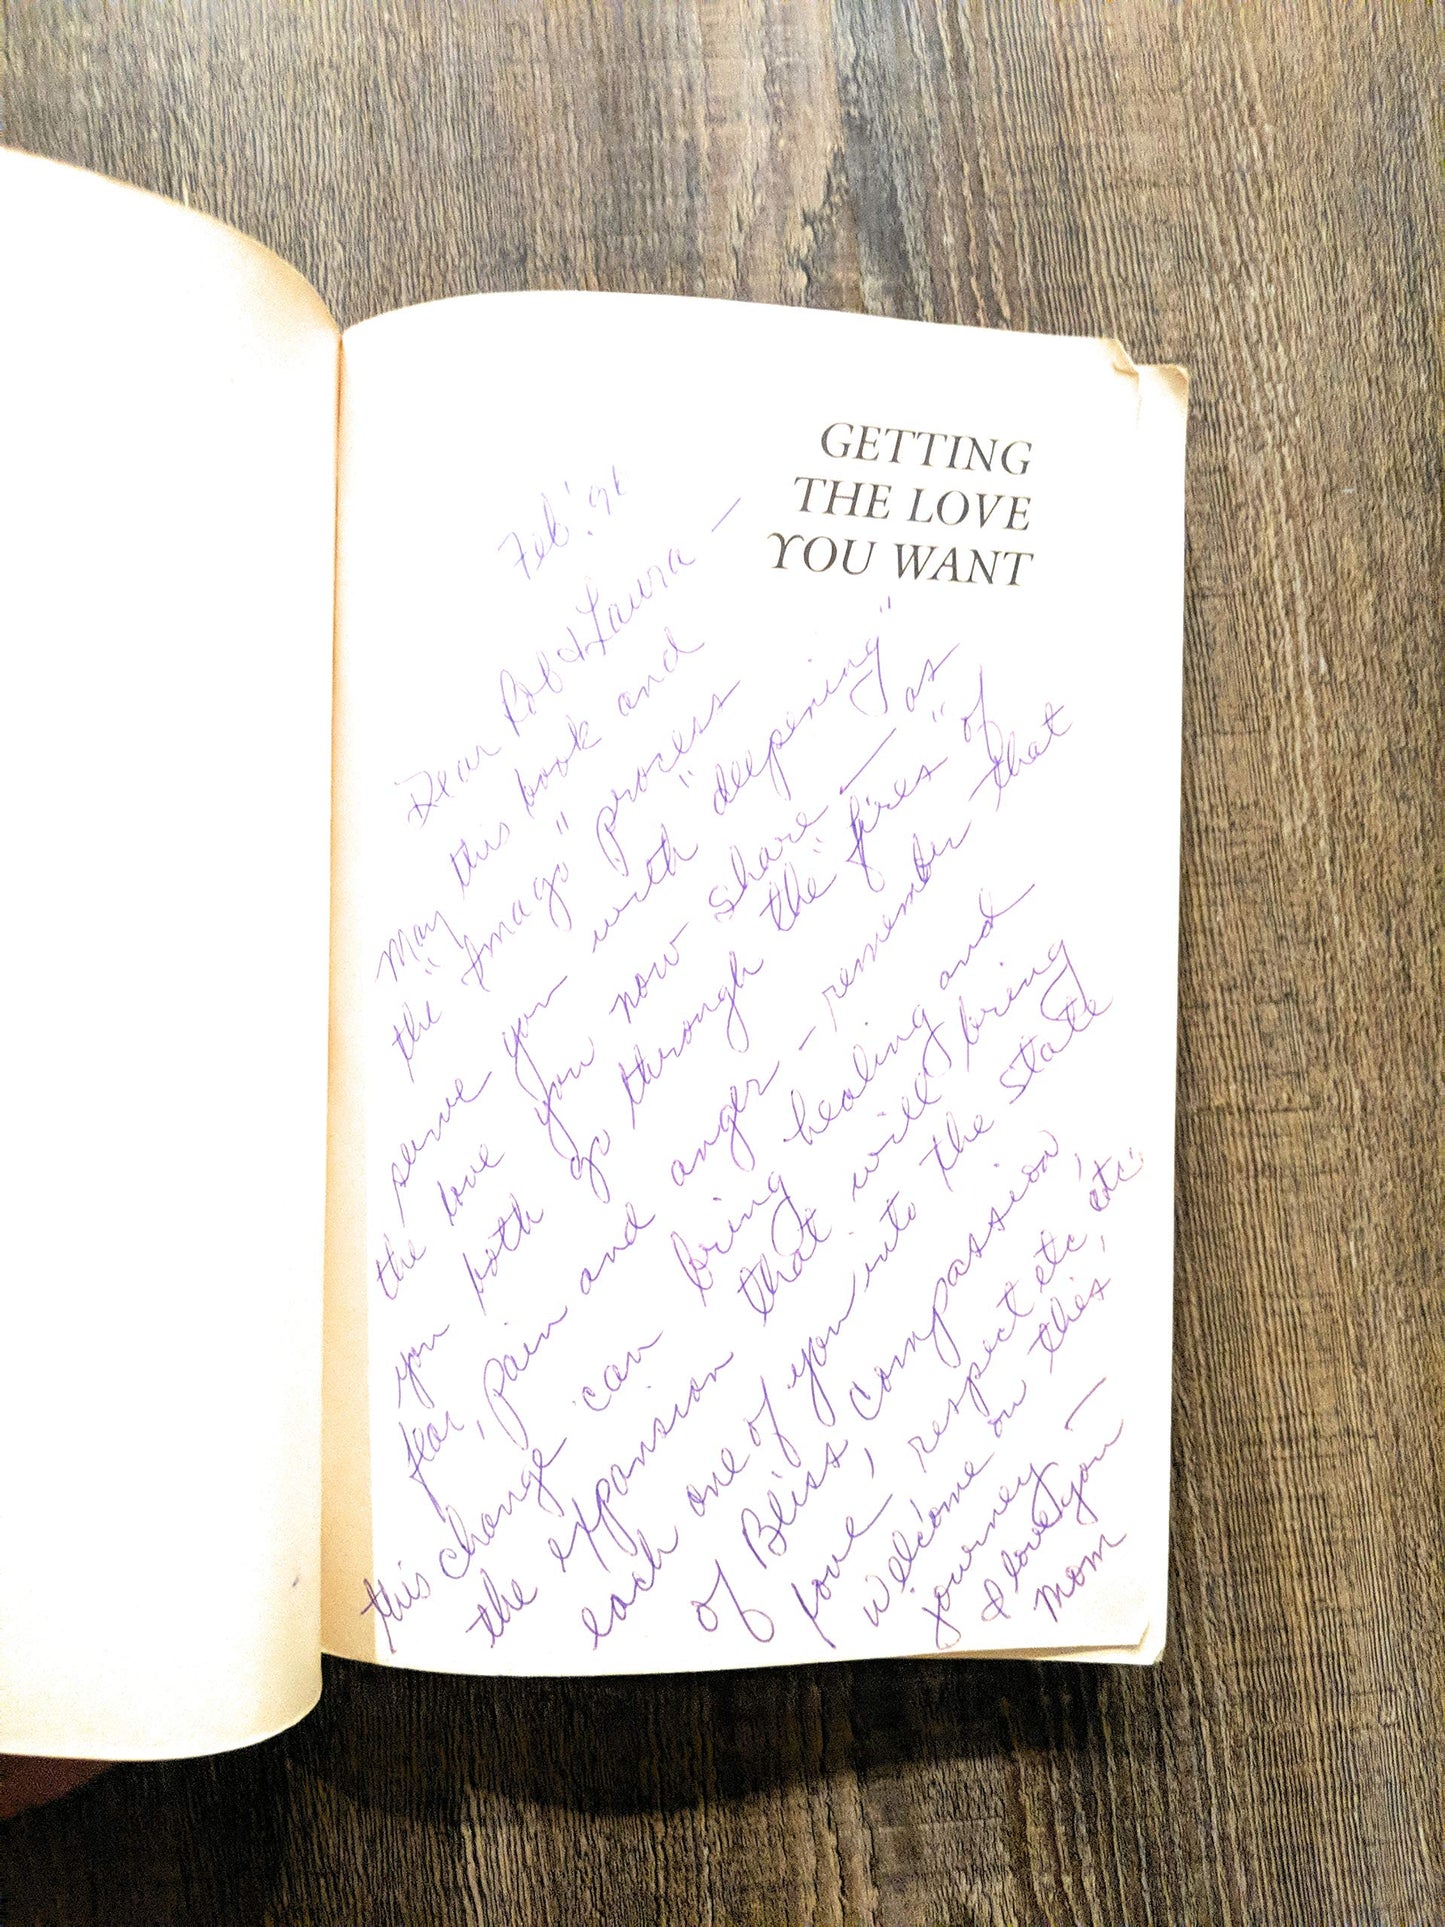 GETTING
THE LOVE
YOU WANT
Feb. '91
Dear Rob & Laura —
May this book and
the "Imago" process
serve you with "deepening"
the love you now share — as
you both go through the "fires" of
fear, pain and anger — remember that
this change can bring healing and
the expansion that will bring
each one of you into the state
of Bliss, compassion,
love, respect etc, etc.
Welcome on this
journey
I love you —
Mom